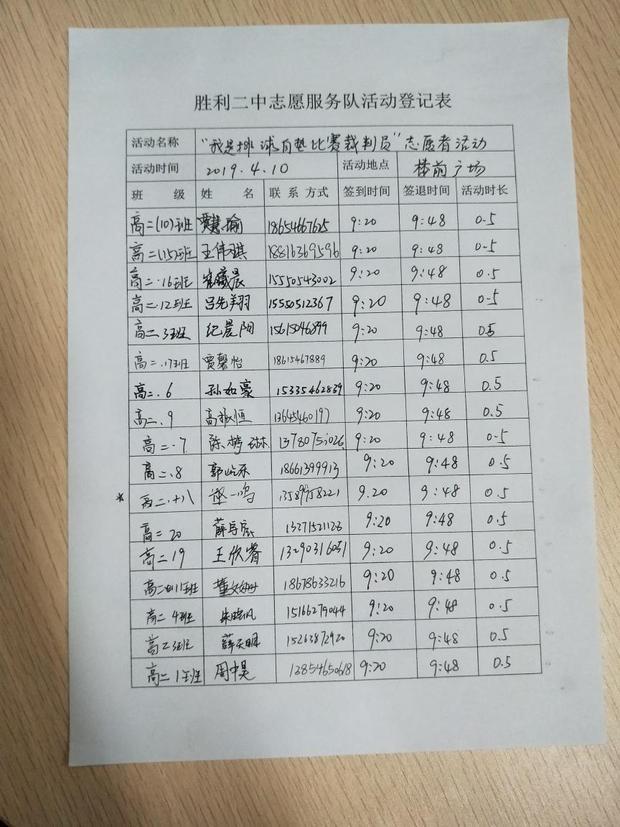 胜利二中志愿服务队活动登记表
活动名称 “我是排球自垫比赛裁判员”志愿者活动
活动时间 2019.4.10 活动地点 楼前广场
班 级 姓 名 联系方式 签到时间 签退时间 活动时长
高二(10)班 贾慧瑜 18654667625 9:20 9:48 0.5
高二(15)班 王伟琪 18816369596 9:20 9:48 0.5
高二.16班 15550543002 9:20 9:48 0.5
高二.12班 吕先翔羽 15550512367 9:20 9:48 0.5
高二.3班 纪晨阳 15615046899 9:20 9:48 0.5
高二.17班 贾馨怡 18615467889 9:20 9:48 0.5
高二.6 孙如豪 15335462839 9:20 9:48 0.5
高二.9 高振恒 13645460197 9:20 9:48 0.5
高二.7 陈梦琳 9:20 9:48 0.5
高二.8 郭屹东 18661399913 9:20 9:48 0.5
* 高二.十八 逄一鸣 9:20 9:48 0.5
高二 20 9:20 9:48 0.5
高二 19 王欣睿 9:20 9:48 0.5
高二 11班 董文 18678633216 9:20 9:48 0.5
高二 4班 朱晓帆 15166279044 9:20 9:48 0.5
高二3班 薛天明 15263872920 9:20 9:48 0.5
高二 1班 周中昊 9:20 9:48 0.5